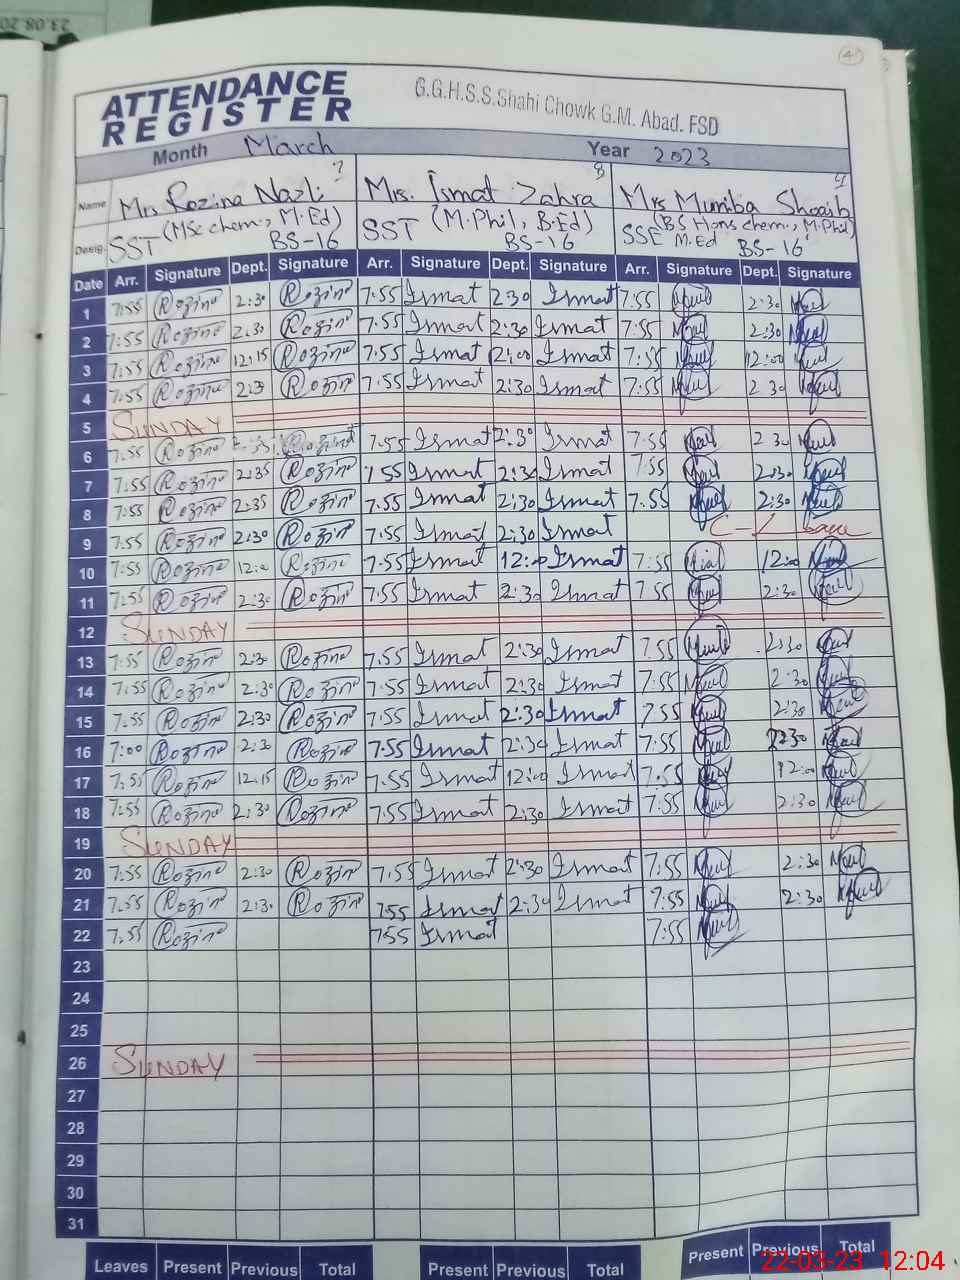 23.08.20
4
ATTENDANCE REGISTER
G.G.H.S.S.Shahi Chowk G.M. Abad. FSD
Month March Year 2023
Name Mrs Rozina Nazli 7 Mrs. Ismat Zahra 8 Mrs Muniba Shoaib 9
Desig. SST (MSc chem., M.Ed) BS-16 SST (M.Phil, B.Ed) BS-16 SSE (BS Hons chem., M.Phil) M.Ed BS-16
Date Arr. Signature Dept. Signature Arr. Signature Dept. Signature Arr. Signature Dept. Signature
1 7:55 Rozina 2:30 Rozina 7:55 Ismat 2:30 Ismat 7:55 2:30
2 7:55 Rozina 2:30 Rozina 7.55 Ismat 2:30 Ismat 7:55 2:30
3 7:55 Rozina 12:15 Rozina 7.55 Ismat 12:00 Ismat 7:55 12:00
4 7:55 Rozina 2:30 Rozina 7.55 Ismat 2:30 Ismat 7:55 2 30
5 SUNDAY
6 7:55 Rozina Rozina 7.55 Ismat 2:30 Ismat 7:55 2 30
7 7:55 Rozina 2:35 Rozina 7 55 Ismat 2:30 Ismat 7:55 2:30
8 7:55 Rozina 2:35 Rozina 7.55 Ismat 2:30 Ismat 7.55 2:30
9 7:55 Rozina 2:30 Rozina 7.55 Ismat 2:30 Ismat C-L leave
10 7:55 Rozina 12:00 Rozina 7.55 Ismat 12:00 Ismat 7:55 12:00
11 7:55 Rozina 2:30 Rozina 7.55 Ismat 2:30 Ismat 7.55 2:30
12 SUNDAY
13 7:55 Rozina 2:30 Rozina 7.55 Ismat 2:30 Ismat 7.55 2:30
14 7:55 Rozina 2:30 Rozina 7.55 Ismat 2:30 Ismat 7:55 2:30
15 7:55 Rozina 2:30 Rozina 7.55 Ismat 2:30 Ismat 7.55 2:30
16 7:00 Rozina 2:30 Rozina 7.55 Ismat 2:30 Ismat 7:55 2:30
17 7:55 Rozina 12:15 Rozina 7.55 Ismat 12:00 Ismat 7.55 12:00
18 7:55 Rozina 2:30 Rozina 7.55 Ismat 2:30 Ismat 7:55 2:30
19 SUNDAY
20 7:55 Rozina 2:30 Rozina 7.55 Ismat 2:30 Ismat 7:55 2:30
21 7:55 Rozina 2:30 Rozina 7.55 Ismat 2:30 Ismat 7:55 2:30
22 7:55 Rozina 7.55 Ismat 7:55
23
24
25
26 SUNDAY
27
28
29
30
31
Leaves Present Previous Total Present Previous Total Present Previous Total
22-03-23 12:04